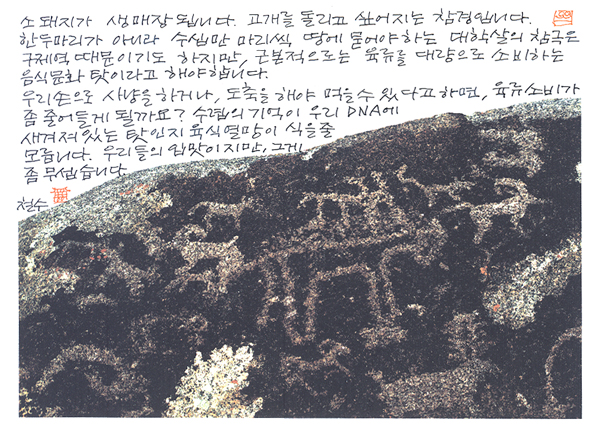 소 돼지가 생매장 됩니다. 고개를 돌리고 싶어지는 참경입니다.
한두마리가 아니라 수십만 마리씩 땅에 묻어야 하는 대학살의 참극은
구제역 때문이기도 하지만, 근본적으로는 육류를 대량으로 소비하는
음식문화 탓이라고 해야 합니다.
우리손으로 사냥을 하거나, 도축을 해야 먹을수 있다고 하면, 육류소비가
좀 줄어들게 될까요? 수렵의 기억이 우리 DNA에
새겨져 있는 탓인지 육식열망이 식을줄
모릅니다. 우리들의 입맛이지만, 그게
좀 무섭습니다
철수